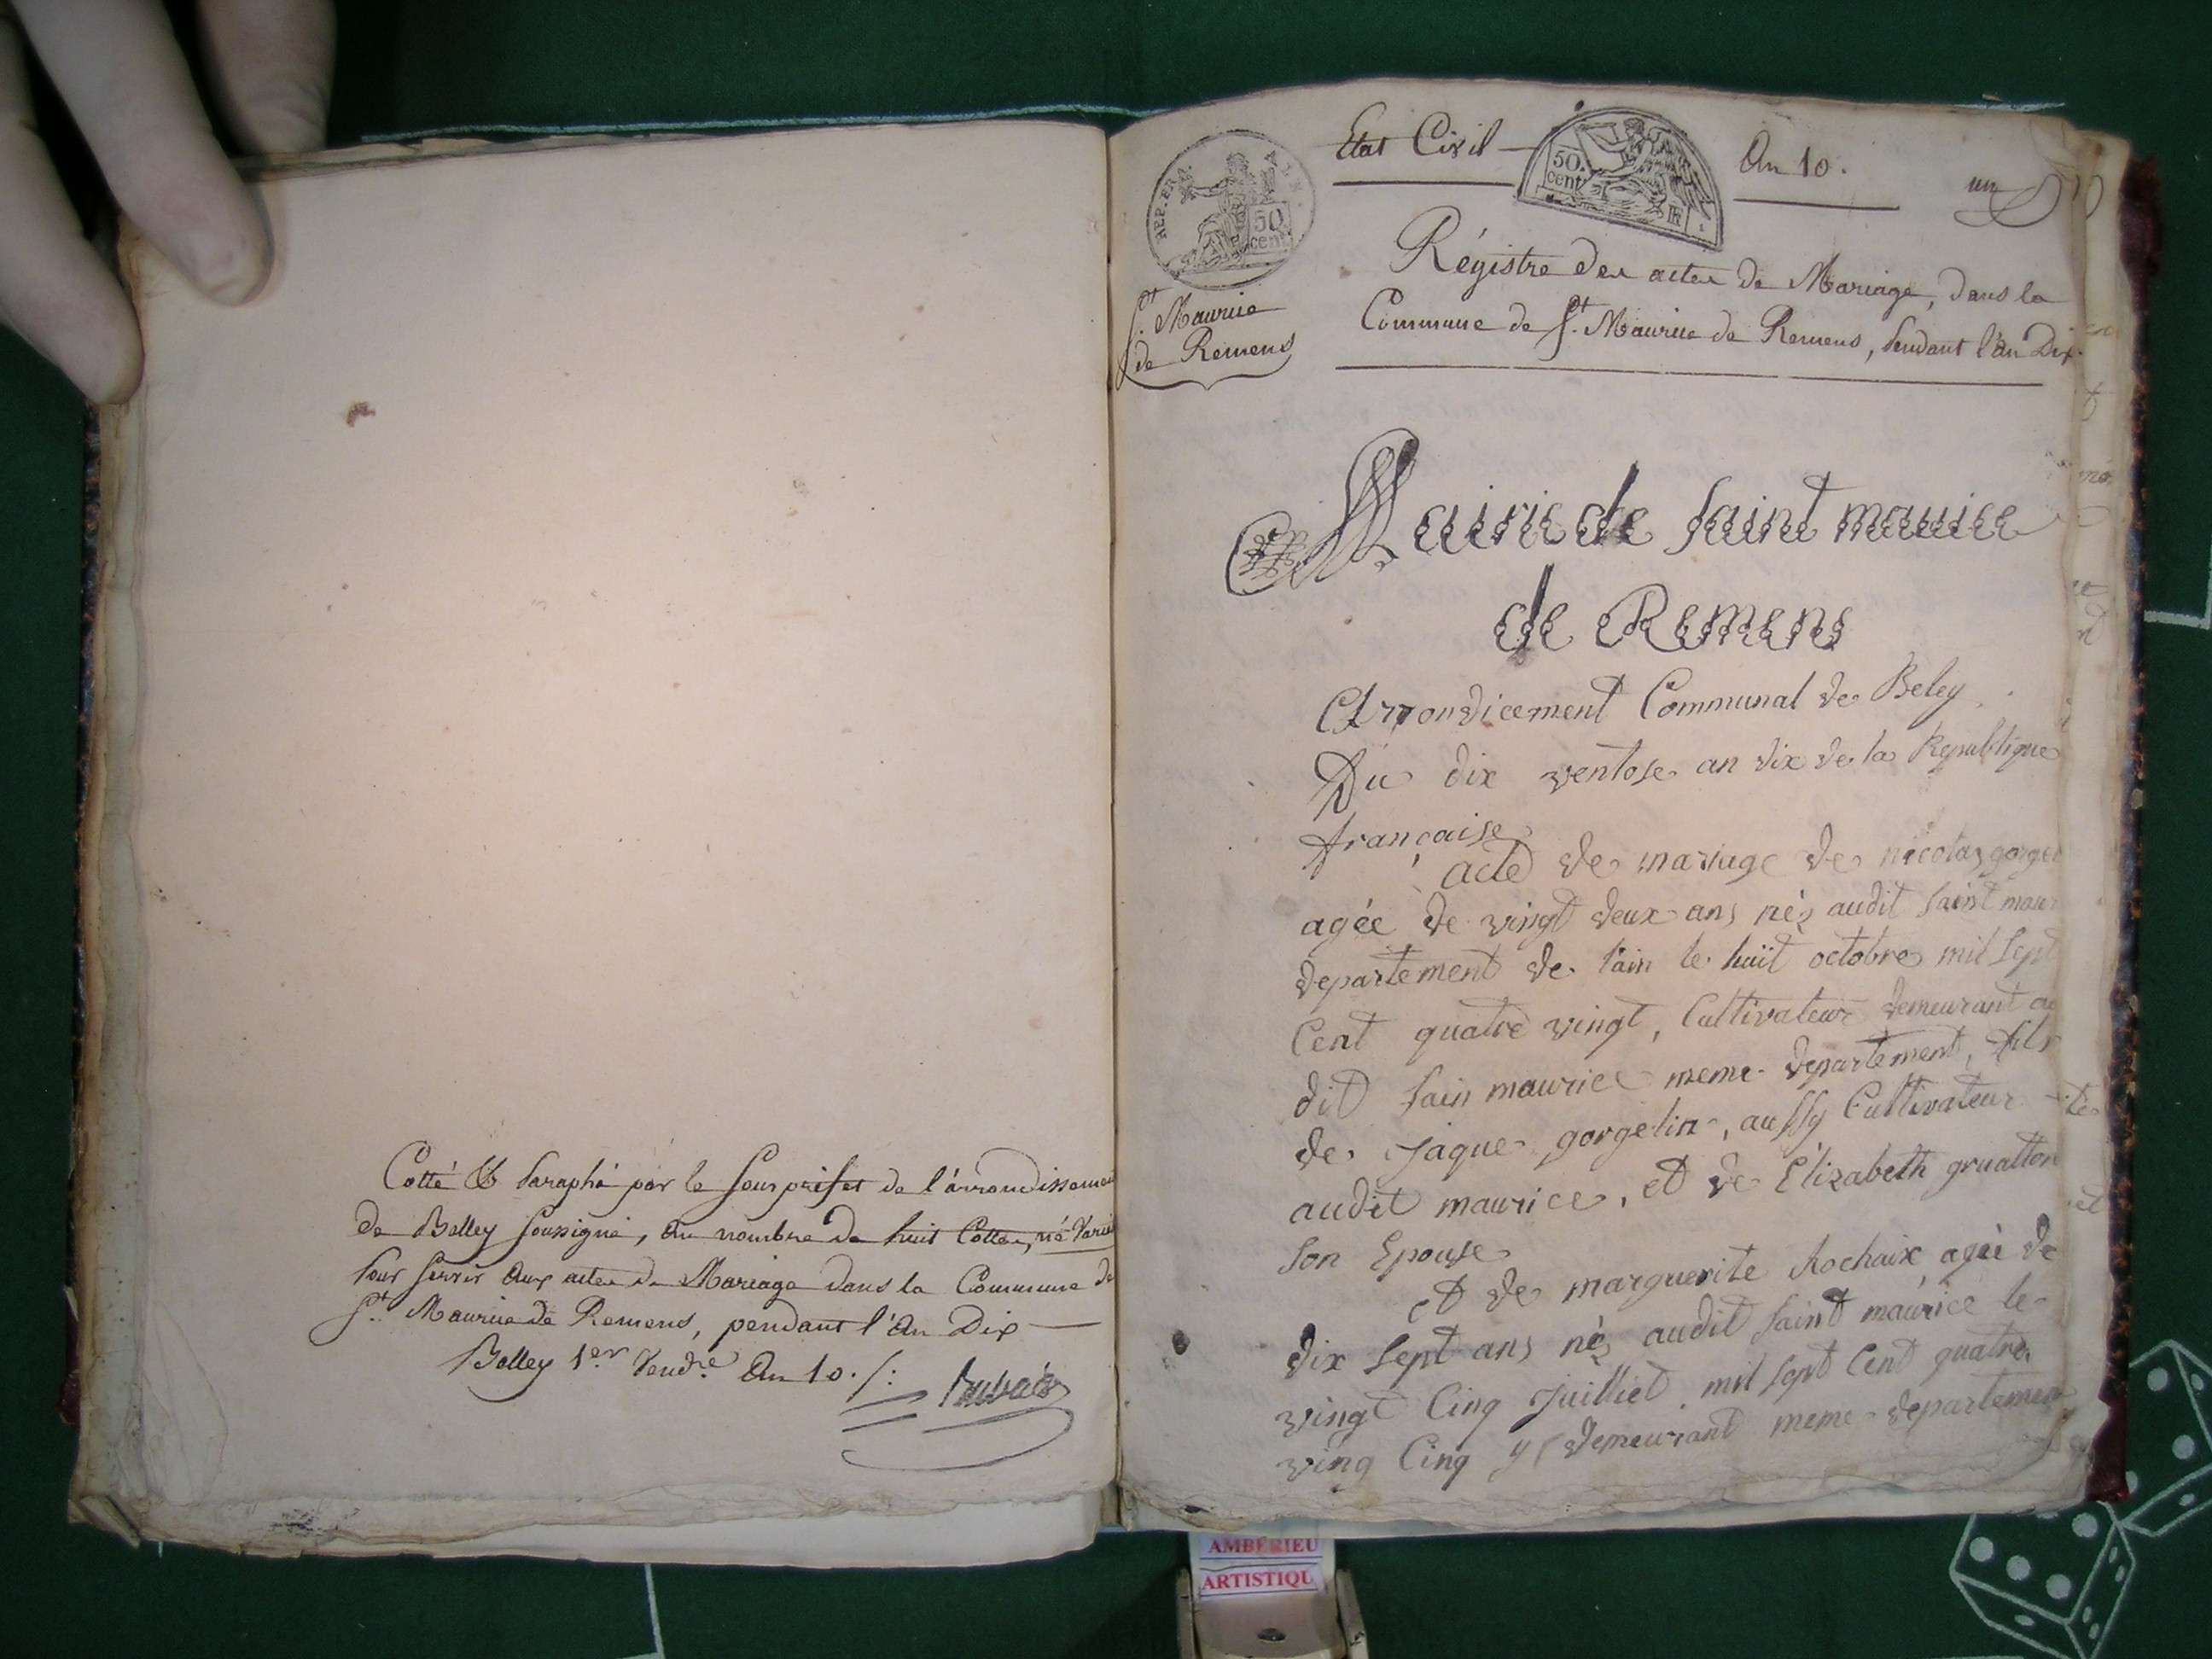 Cotté & Paraphé par le Sous préfet de l'arrondissement
de Belley soussigné, au nombre de huit Cottes, né Varié
Pour servir aux actes de Mariage dans la Commune de
St. Maurice de Remens, pendant l'an Dix
Belley 1er Vendre. An 10 ./:
REP. FRA.
50
cent.
St. Maurice
de Remens
Etat Civil
50.
cent.
An 10.
un
Régistre des actes de Mariage, dans la
Commune de St. Maurice de Remens, Pendant l'an Dix.
Mairie de saint maurice
de Remens
Arrondicement Communal de Beley
Du dix ventose an dix de la Republique
française
acte de mariage de nicolas gorgel
agée de vingt deux ans nés audit saint maur
departement de l'ain le huit octobre mil sept
Cent quatre vingt, Cultivateur demeurant au
dit sain maurice meme departement, fils
de jaque gorgelin, aussy Cultivateur
audit maurice, et de Elizabeth gruatton
son Epouse
et de marguerite Rochaix agée de
dix sept ans né audit saint maurice le
vingt Cinq juilliet mil sept Cent quatre
ving Cinq y demeurant meme departement
AMBERIEU
ARTISTIQU